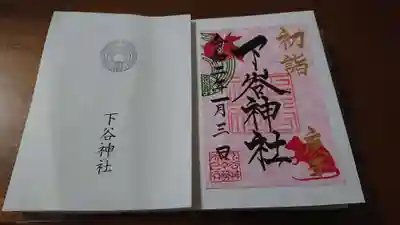 下谷神社
初詣
下谷神社
令二年一月三日